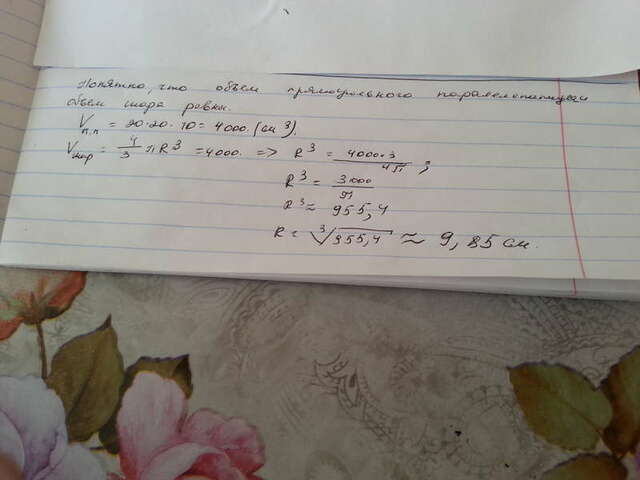 Понятно, что объем прямоугольного параллелепипеда
объем шара равны.
Vп.п = 20·20·10 = 4000. (см³).
Vшар = 4/3 πR³ = 4000. => R³ = 4000·3/4π ;
R³ = 3000/π
R³ ≈ 955,4
R = ∛955,4 ≈ 9,85 см.